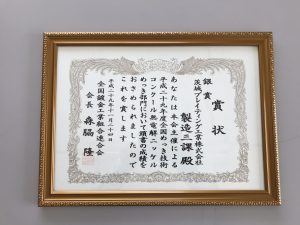 賞状
銀賞
茨城プレイティング工業株式会社
製造三課殿
あなたは本会主催による
平成二十九年度全国めっき技術
コンクール無電解ニッケル
めっき部門において頭書の成績を
おさめられましたので
これを賞します
平成二十九年十一月二十四日
全国鍍金工業組合連合会
会長 森脇隆